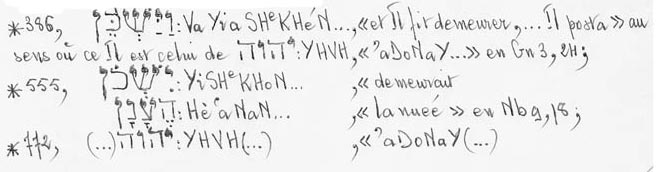 *386, וַיַּשְׁכֵּן : VaYiaSHᵉKHéN..., «et Il fit demeurer, ... Il posta» au
sens où ce Il est celui de יהוה : YHVH, «ʾaDoNaY...» en Gn 3, 24;
*555, יִשְׁכֹּן : YiSHᵉKHoN... , «demeurait
הֶעָנָן : HèʿaNaN... , «la nuée» en Nb 9, 18;
*772, (...)יהוה : YHVH(...) , «ʾaDoNaY(...)